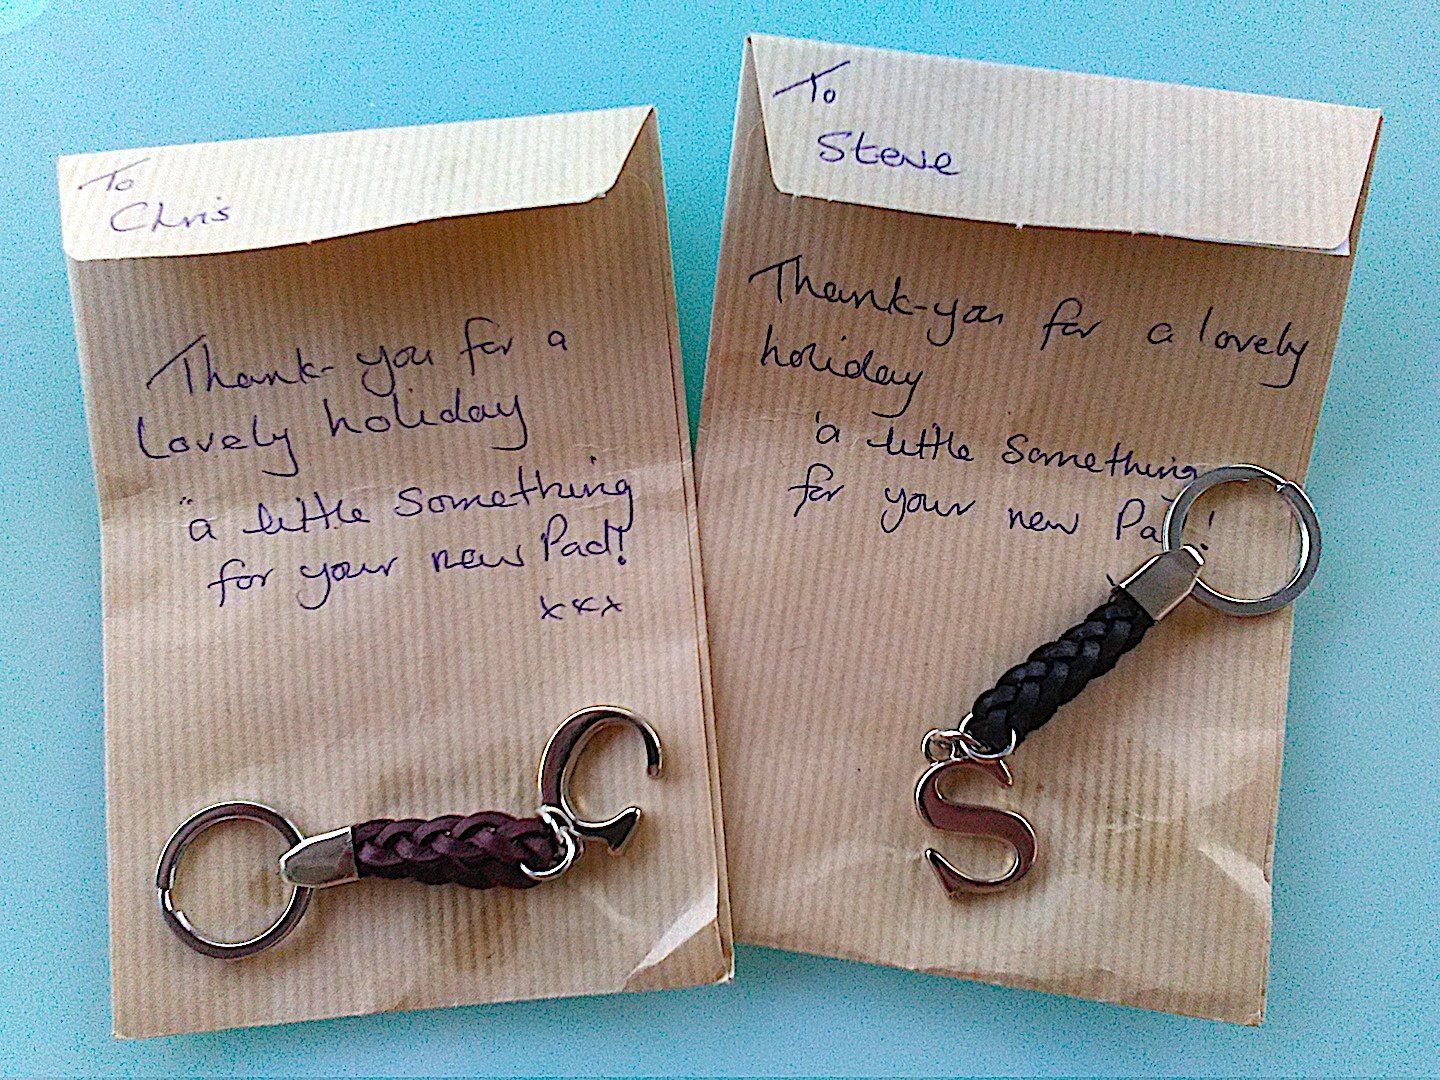 To
Chris
Thank-you for a
lovely holiday
"a little something
for your new Pad!
xxx
C
To
Steve
Thank-you for a lovely
holiday
'a little something
for your new Pad!
S